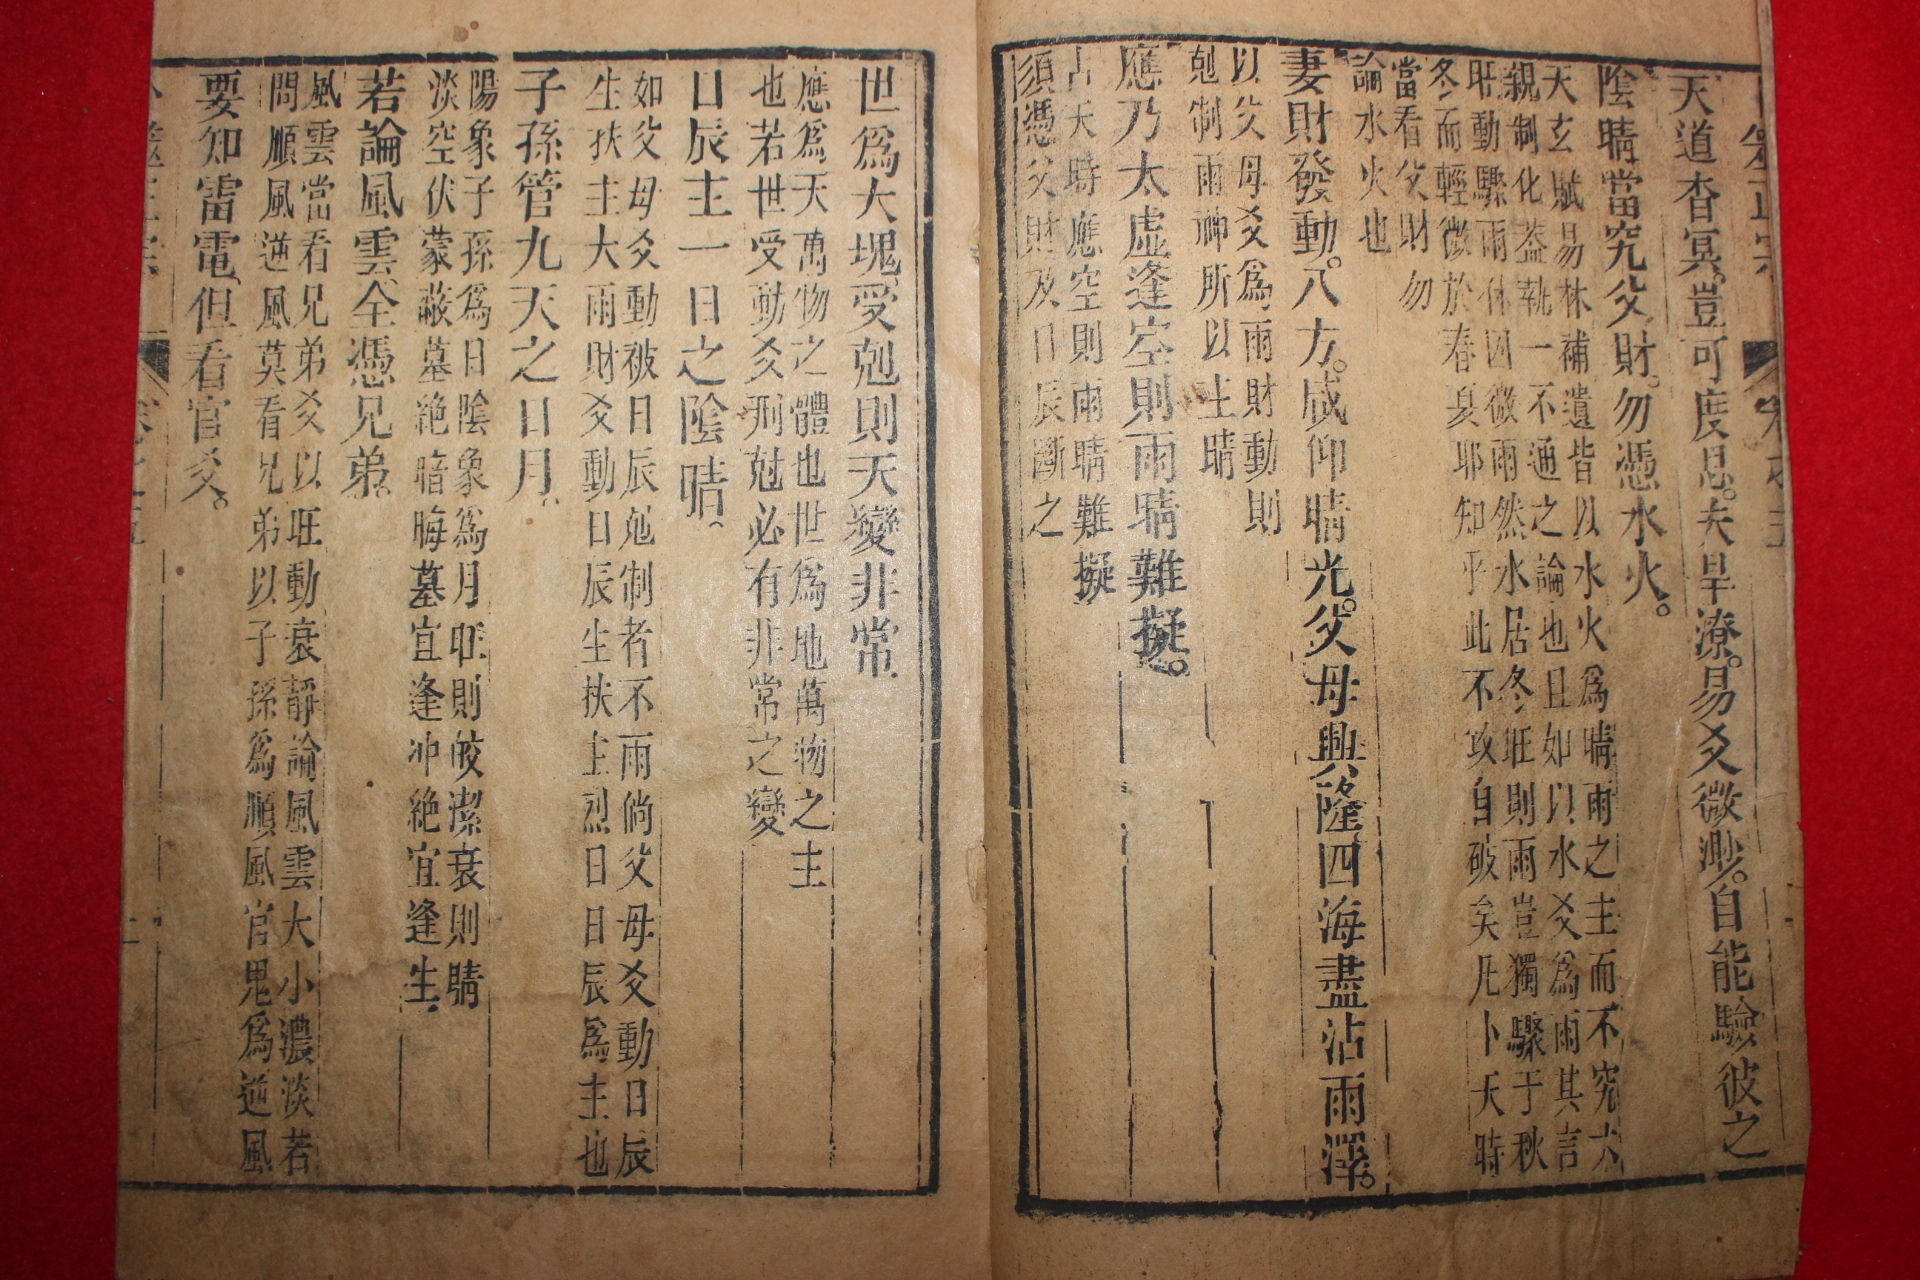 天道杳冥。豈可度思。夫旱潦。易爻微渺。自能驗彼之
陰晴當究父財。勿憑水火。
天玄賦易林補遺皆以水火爲晴雨之主而不究六
親制化蓋執一不通之論也且如以水爻爲雨其言
旺動驟雨休囚微雨然水居冬旺則雨豈獨驟于秋
冬而輕微於春夏耶知乎此不攻自破矣凡卜天時
當看父財勿
論水火也
妻財發動。八方。咸仰晴光。父母興隆四海盡沾雨澤。
以父母爻爲雨財動則
剋制雨神所以主晴
應乃太虛逢空則雨晴難擬。
占天時應空則雨晴難擬
須憑父財及日辰斷之
世爲大塊受剋則天變非常
應爲天萬物之體也世爲地萬物之主
也若世受動爻刑尅必有非常之變
日辰主一日之陰晴。
如父母爻動被日辰剋制者不雨倘父母爻動日辰
生扶主大雨財爻動日辰生扶主烈日日辰爲主也
子孫管九天之日月。
陽象子孫爲日陰象爲月旺則皎潔衰則晴
淡空伏蒙蔽墓絕暗晦墓宜逢冲絕宜逢生
若論風雲全憑兄弟。
風雲當看兄弟爻以旺動衰靜論風雲大小濃淡若
問順風逆風莫看兄弟以子孫爲順風官鬼爲逆風
要知雷電但看官爻。